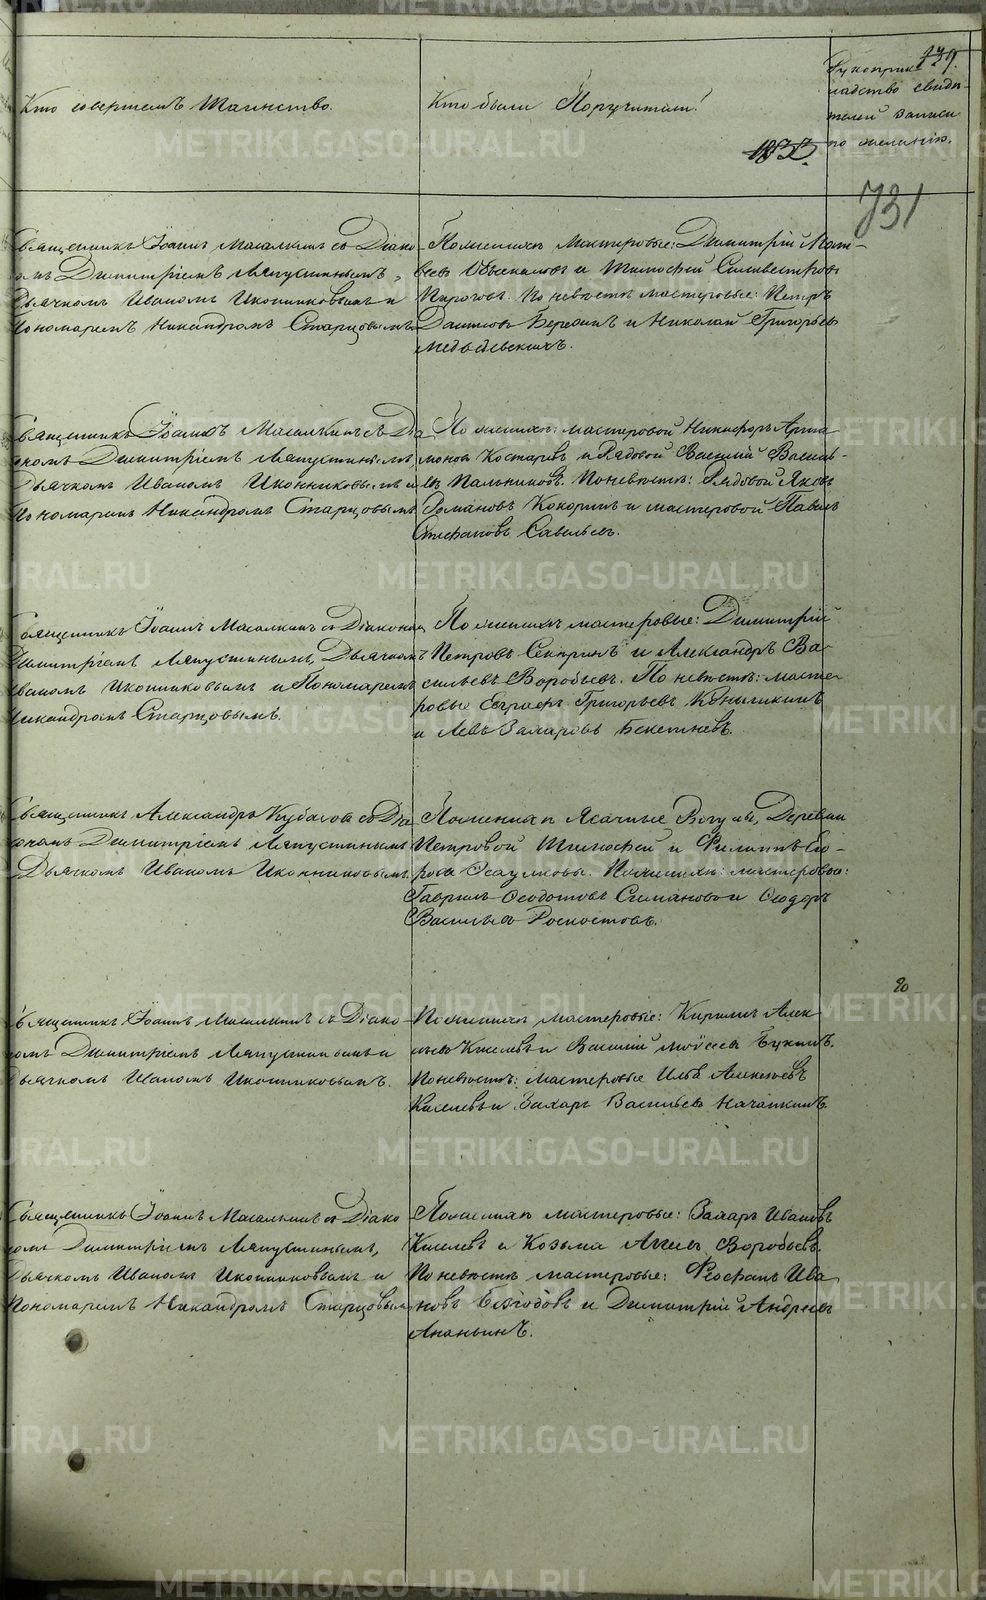 Кто совершалъ Таинство.
Кто были Поручители?
Рукоприк
ладство свиде
телей записи
по желанію.
739.
731
Священникъ Іоаннъ Масалкинъ съ Діако
номъ Димитріемъ Ляпустинымъ,
Дьячкомъ Иваномъ Иконниковымъ и
Пономаремъ Никандромъ Старцовымъ
По женихѣ Мастеровые: Димитрій Мат-
веевъ и Тимофей Силвестровъ
Пироговъ. По невѣстѣ мастеровые: Петръ
Даниловъ Березинъ и Николай Григорьевъ
Священникъ Іоаннъ Масалкинъ съ Діа
кономъ Димитріемъ Ляпустинымъ
Дьячкомъ Иваномъ Иконниковымъ и
Пономаремъ Никандромъ Старцовымъ
По женихѣ: мастеровой Никифоръ Арта
моновъ Костаревъ и Рядовой Василій Василь-
евъ Пальниковъ. По невѣстѣ: Рядовой Яковъ
Романовъ Кокоринъ и мастеровой Павелъ
Стефановъ Савельевъ.
Священникъ Іоаннъ Масалкинъ съ Діакономъ
Димитріемъ Ляпустинымъ, Дьячкомъ
Иваномъ Иконниковымъ и Пономаремъ
Никандромъ Старцовымъ.
По женихѣ мастеровые: Димитрій
Петровъ и Александръ Ва-
сильевъ Воробьевъ. По невѣстѣ: масте
ровые Евграфъ Григорьевъ
и Левъ Захаровъ Бекетневъ.
Священникъ Александръ съ Діа
кономъ Димитріемъ Ляпустинымъ
Дьячкомъ Иваномъ Иконниковымъ.
По женихѣ Ясачные Вогулы, Деревни
Петровой Тимофей и Филиппъ Его-
ровы Есаулковы. мастеровые:
Гаврилъ Ѳеодотовъ Симановъ и Ѳеодоръ
Васильевъ
20
Священникъ Іоаннъ Масалкинъ съ Діако
номъ Димитріемъ Ляпустинымъ и
Дьячкомъ Иваномъ Иконниковымъ.
По женихѣ мастеровые: Кирилъ Алек
Киселевъ и Василій Моисеевъ
По невѣстѣ: Мастеровые Илья Алексеевъ
Киселевъ и Захаръ Васильевъ Начапкинъ.
Священникъ Іоаннъ Масалкинъ съ Діако
номъ Димитріемъ Ляпустинымъ,
Дьячкомъ Иваномъ Иконниковымъ и
Пономаремъ Никандромъ Старцовымъ
По женихѣ мастеровые: Захаръ Ивановъ
Киселевъ и Козьма Воробьевъ.
По невѣстѣ мастеровые: Ѳеофанъ Ива
новъ и Димитрій Андреевъ
Ананьинъ.
METRIKI.GASO-URAL.RU